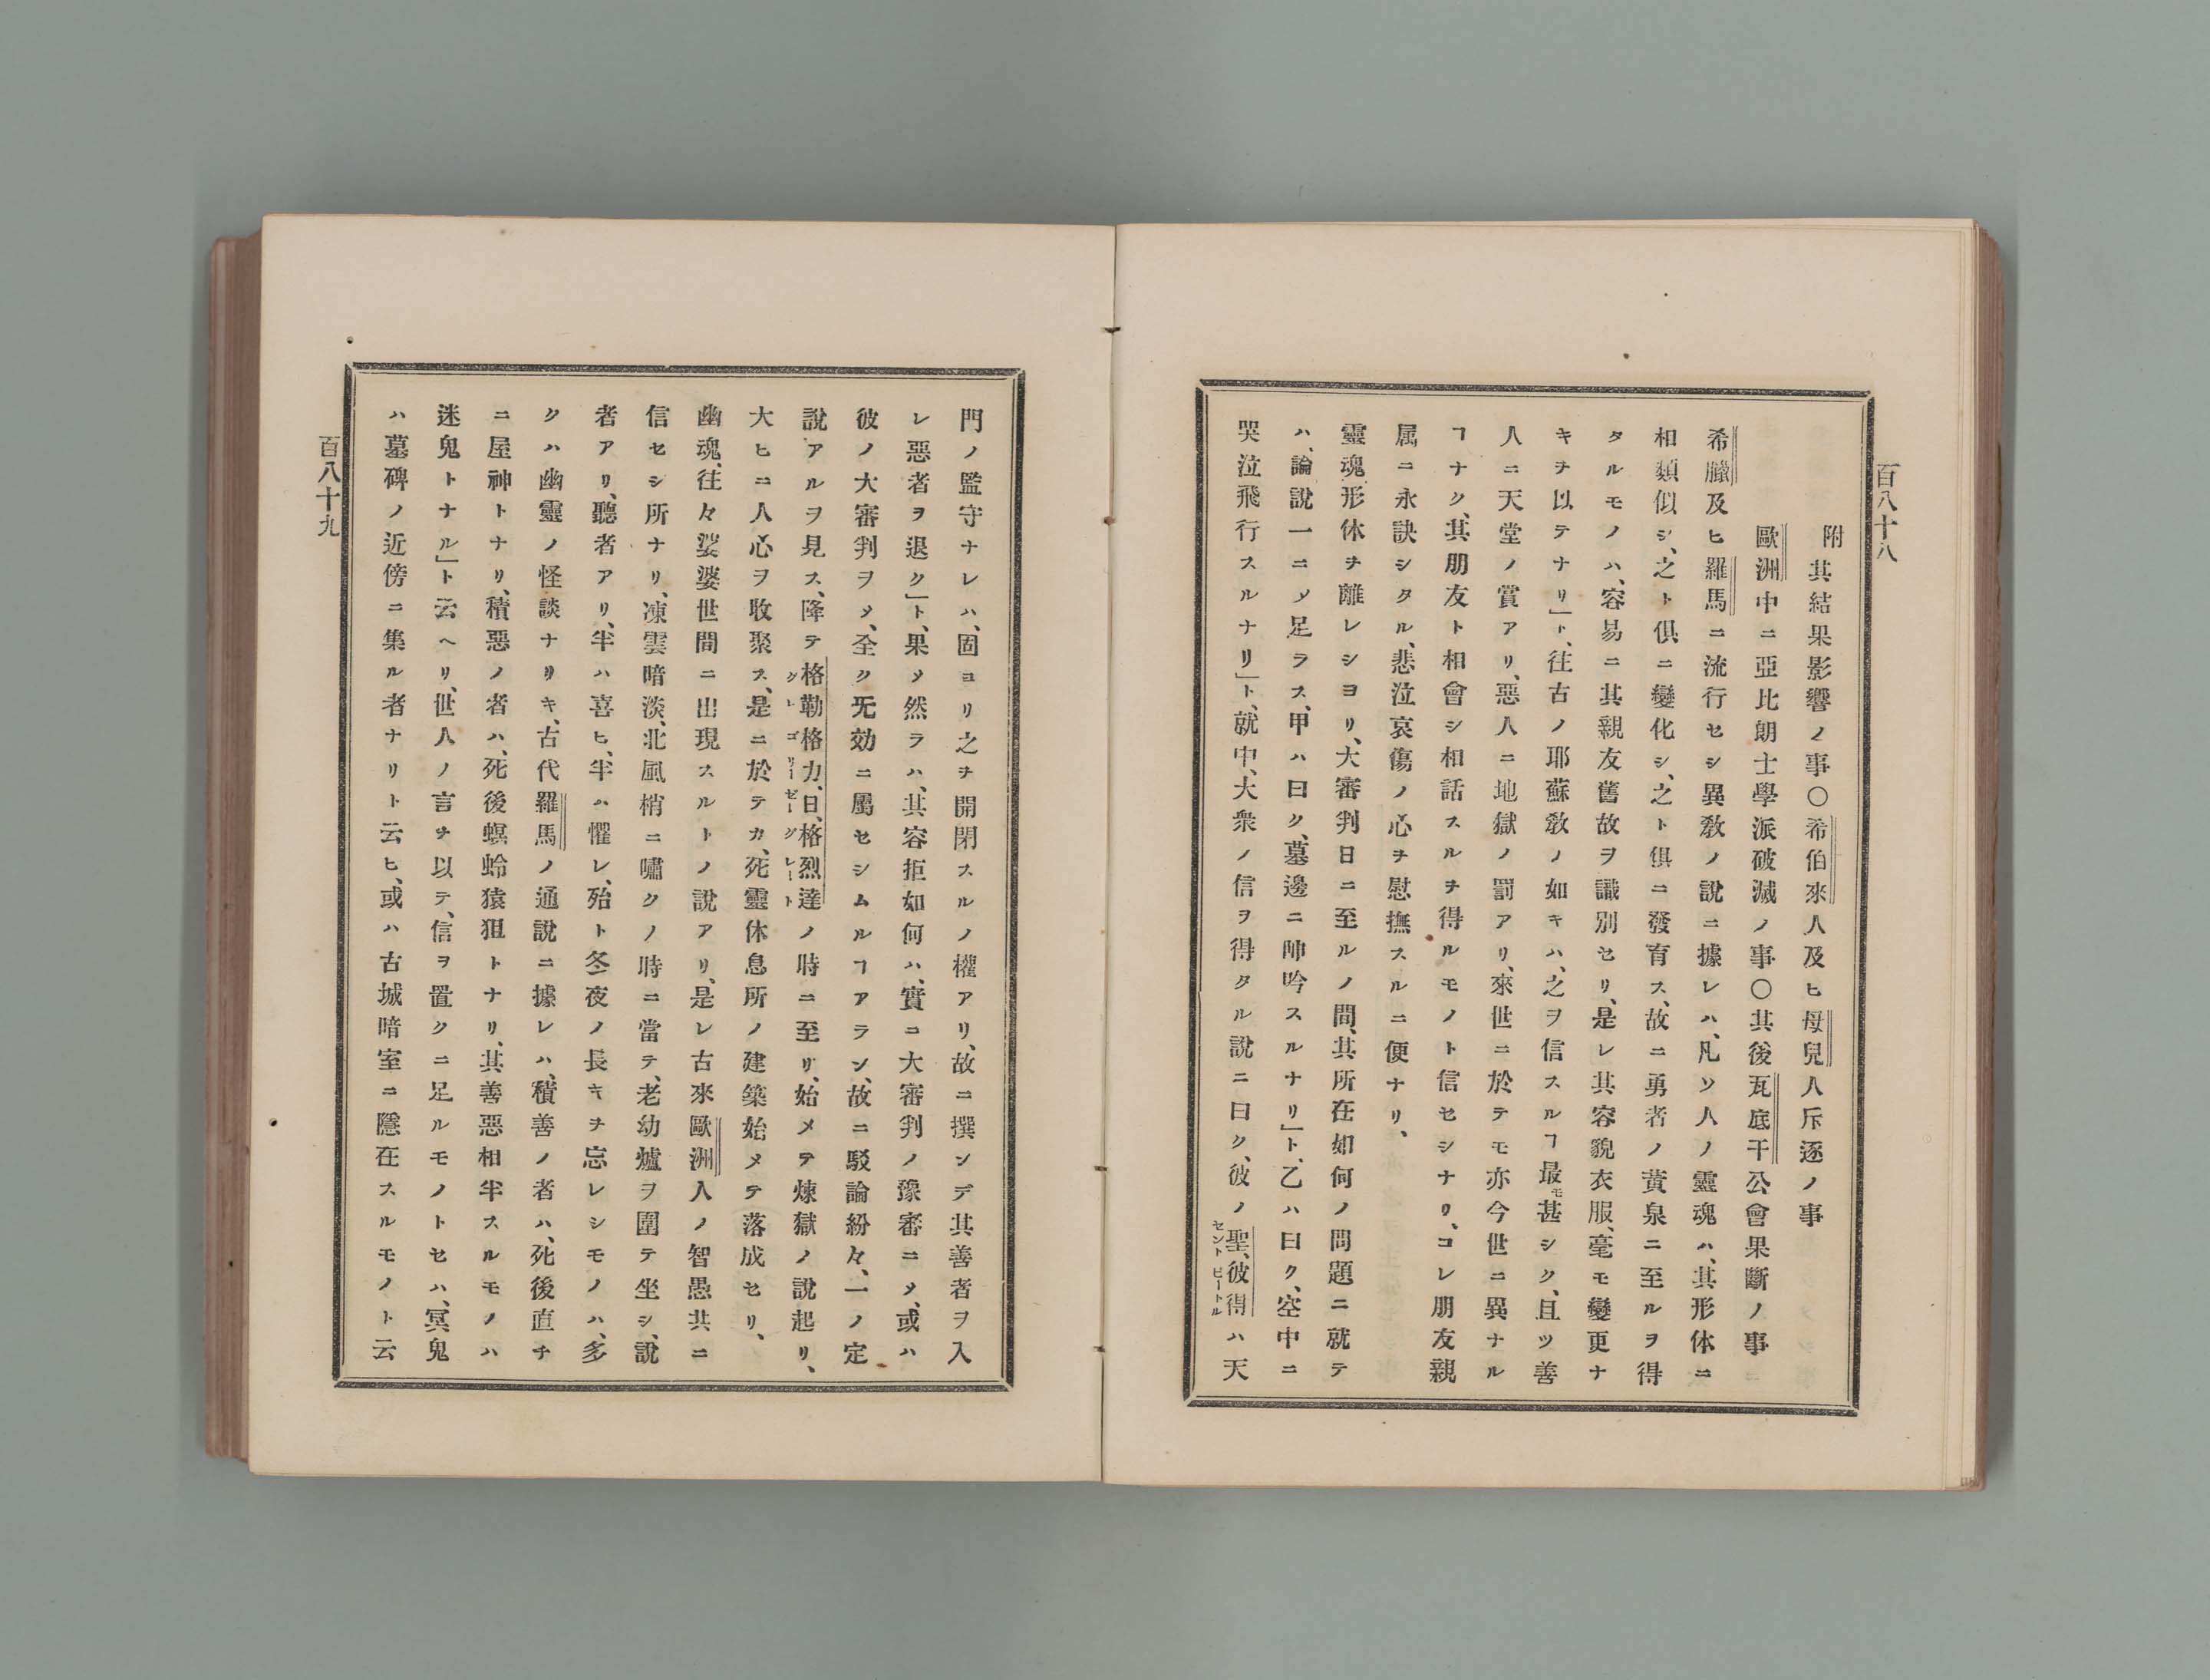 百八十八
附其結果影響ノ事〇希伯來人及ヒ母兒人斥逐ノ事
歐洲中ニ亞比朗士學派破滅ノ事〇其後瓦底干公會果斷ノ事
希臘及ヒ羅馬ニ流行セシ異敎ノ說ニ據レハ、凡ソ人ノ靈魂ハ、其形体ニ
相類似シ、之ト俱ニ變化シ、之ト俱ニ發育ス、故ニ勇者ノ黃泉ニ至ルヲ得
タルモノハ、容易ニ其親友舊故ヲ識別セリ、是レ其容貌衣服、毫モ變更ナ
キヲ以テナリ」ト、往古ノ耶蘇敎ノ如キハ、之ヲ信スルヿ最モ甚シク、且ツ善
人ニ天堂ノ賞アリ、惡人ニ地獄ノ罰アリ、來世ニ於テモ亦今世ニ異ナル
ヿナク、其朋友ト相會シ相話スルヲ得ルモノト信セシナリ、コレ朋友親
属ニ永訣シタル、悲泣哀傷ノ心ヲ慰撫スルニ便ナリ、
靈魂形休ヲ離レシヨリ、大審判日ニ至ルノ間、其所在如何ノ問題ニ就テ
ハ、論說一ニメ足ラス、甲ハ曰ク、墓邊ニ呻吟スルナリ」ト、乙ハ曰ク、空中ニ
哭泣飛行スルナリ」ト、就中、大衆ノ信ヲ得タル說ニ曰ク、彼ノ聖彼得ハ天
セントピートル
門ノ監守ナレハ、固ヨリ之ヲ開閉スルノ權アリ、故ニ撰ンデ其善者ヲ入
レ惡者ヲ退ク」ト、果メ然ラハ、其容拒如何ハ、實ニ大審判ノ豫審ニメ、或ハ
彼ノ大審判ヲメ、全ク无効ニ屬セシムルヿアラン、故ニ駁論紛々、一ノ定
說アルヲ見ス、降テ格勒格力、日、格烈達ノ時ニ至リ、始メテ煉獄ノ說起リ、
グレゴリーゼーグレート
大ヒニ人心ヲ收聚ス、是ニ於テカ、死靈休息所ノ建築始メテ落成セリ、
幽魂、往々娑婆世間ニ出現スルトノ說アリ、是レ古來歐洲人ノ智愚共ニ
信セシ所ナリ、凍雲暗淡、北風梢ニ嘯クノ時ニ當テ、老幼爐ヲ圍テ坐シ、說
者アリ、聽者アリ、半ハ喜ヒ、半ハ懼レ、殆ト冬夜ノ長キヲ忘レシモノハ、多
クハ幽靈ノ怪談ナリキ、古代羅馬ノ通說ニ據レハ、積善ノ者ハ、死後直チ
ニ屋神トナリ、積惡ノ者ハ、死後螟蛉猿狙トナリ、其善惡相半スルモノハ
迷鬼トナル」ト云ヘリ、世人ノ言ヲ以テ、信ヲ置クニ足ルモノトセハ、冥鬼
ハ墓碑ノ近傍ニ集ル者ナリト云ヒ、或ハ古城暗室ニ隱在スルモノト云
百八十九